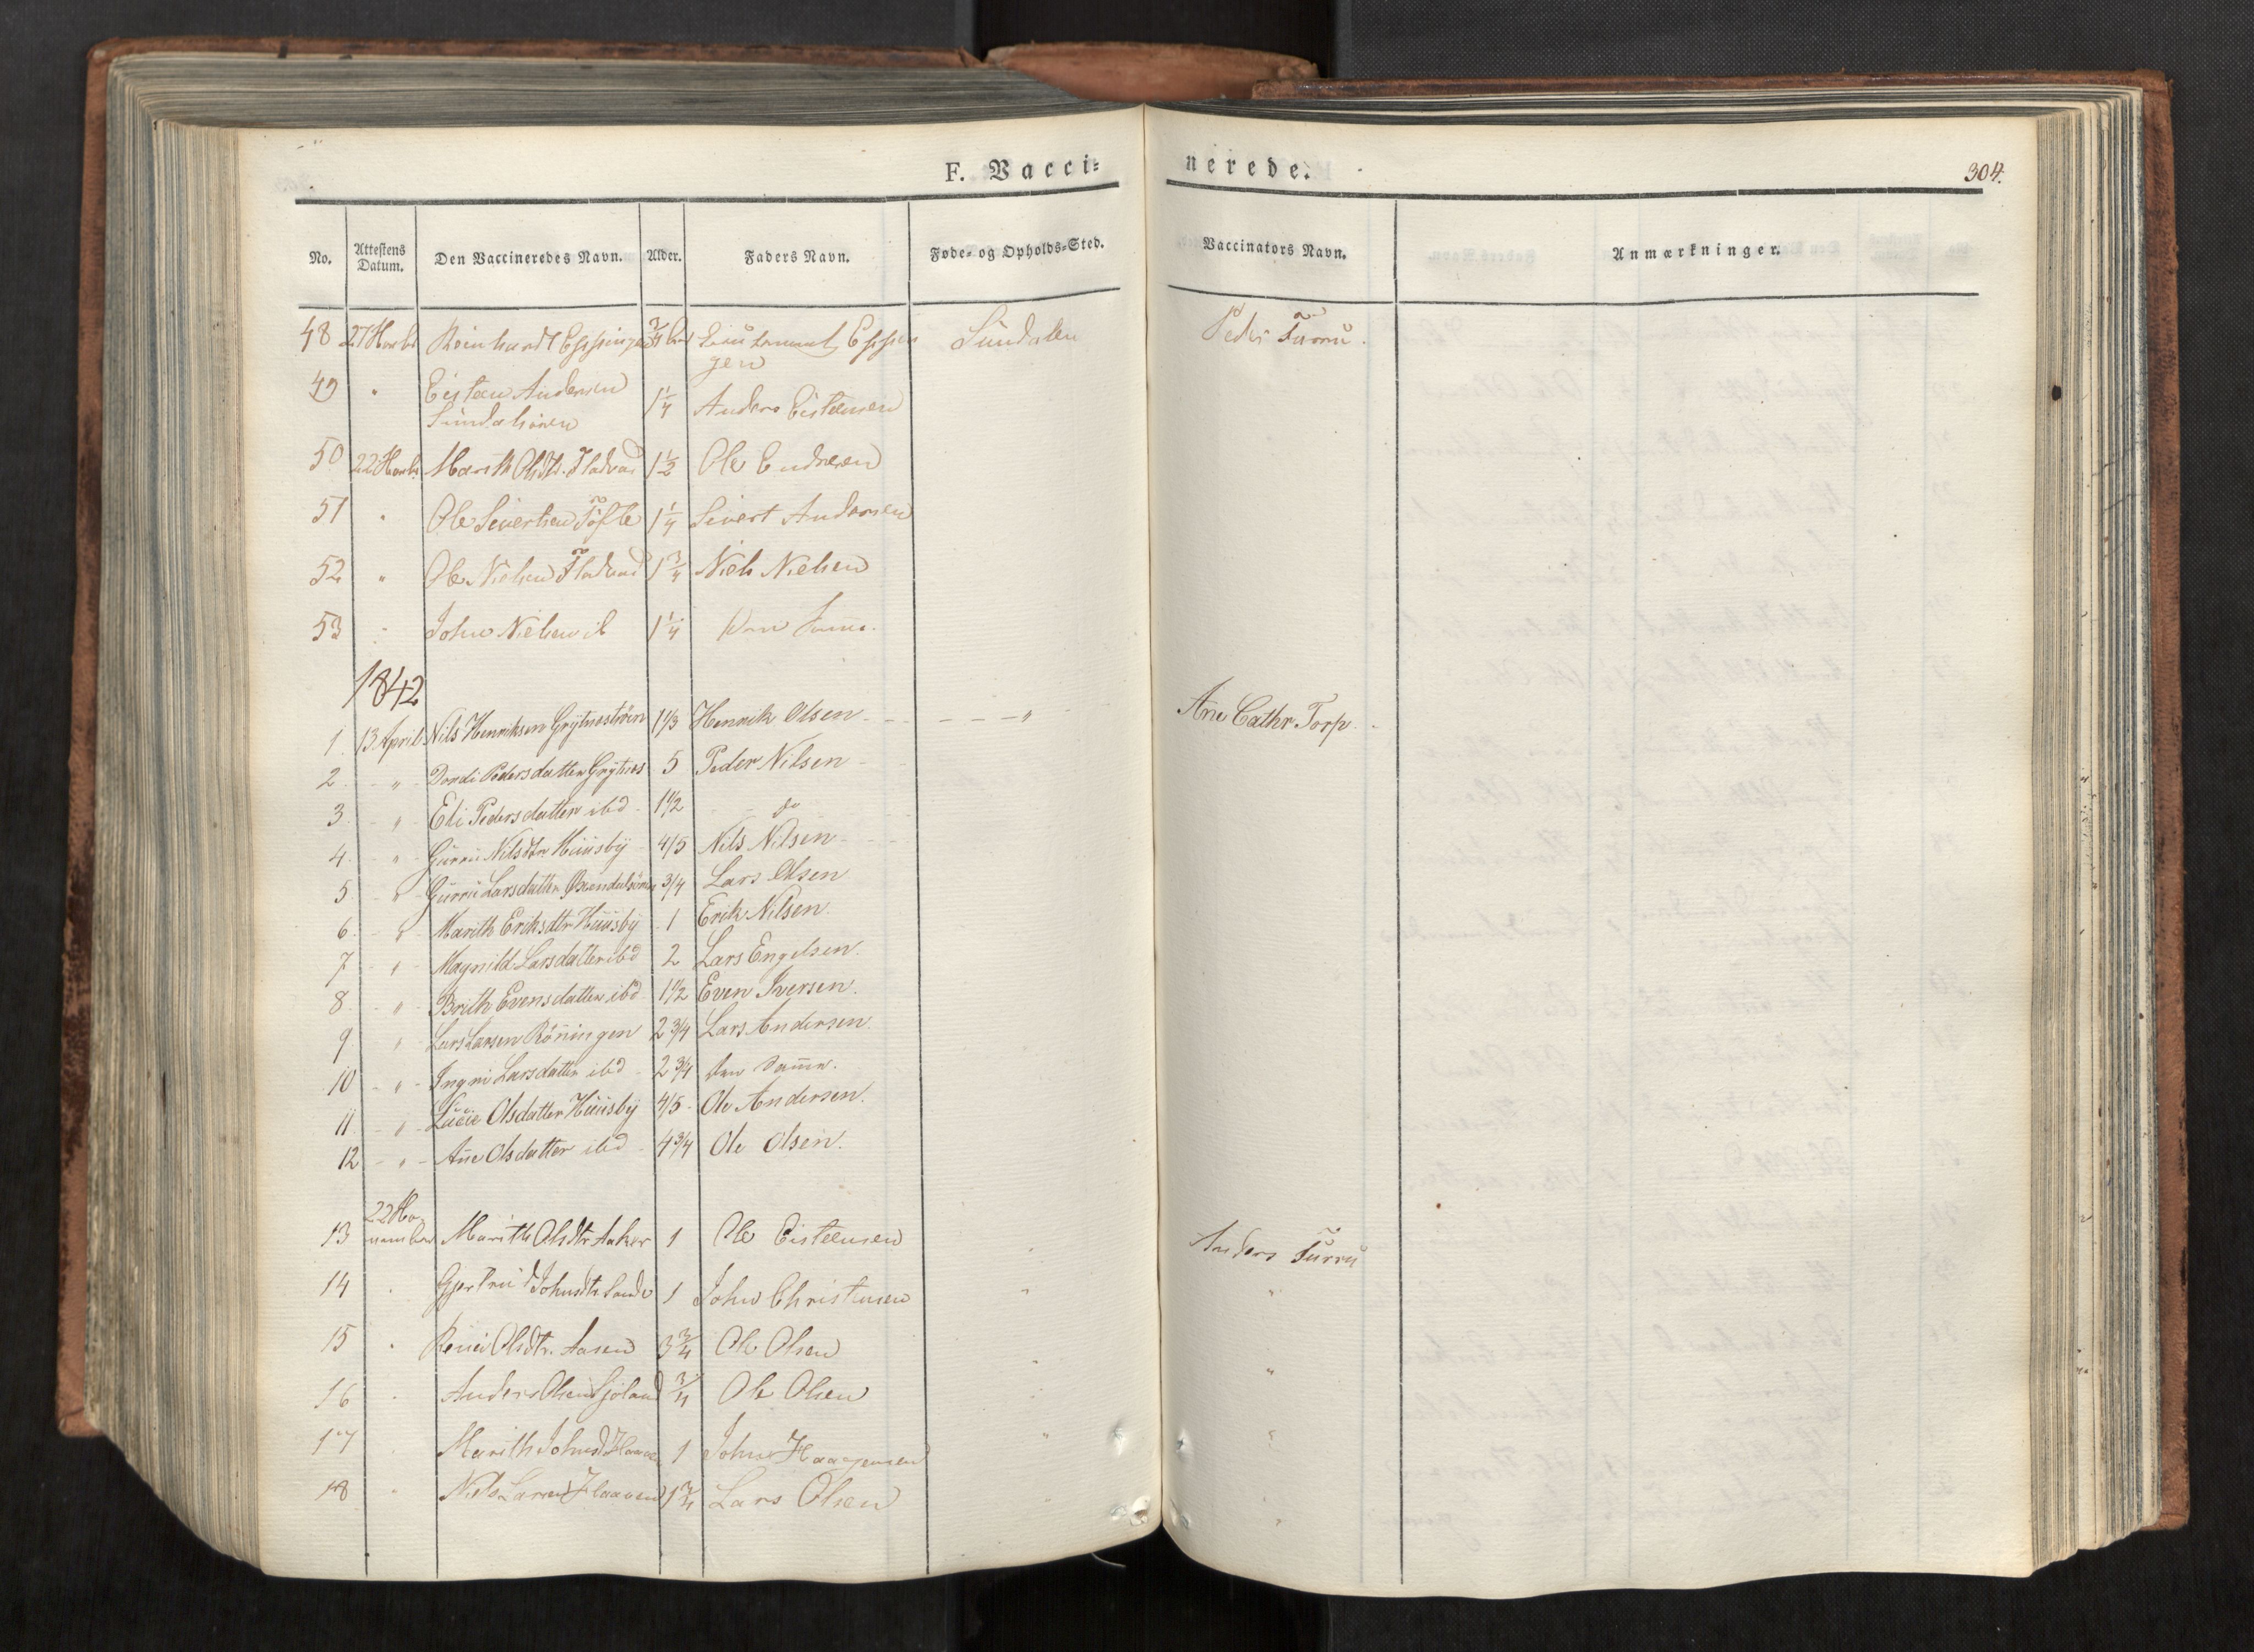 F. Vacci=
nerede.
304.
No. Attestens Datum. Den Vaccineredes Navn. Alder. Faders Navn. Føde= og Opholds=Sted. Vaccinators Navn. Anmærkninger.
48 27 Reinhardt 3/4 Sundalen Peder Furru.
gen
49 " Eisten Andersen 1 1/4 Anders Eistensen
Sundalsören
50 22 Marith Olsdtr. Fladvad 1 1/2 Ole Endresen
51 " Ole Sivertsen Töfte 1 1/4 Sivert Andersen
52 " Ole Nielsen Fladvad 1 3/4 Niels Nielsen
53 " John Nielsen ib 1 1/4 Den Samme.
1842
1. 13 April Nils Henriksen 1 1/3 Henrik Olsen " Ane Cathr. Torp
2 " Dordi Pedersdatter Grytnes 5 Peder Nilsen
3. " Eli Pedersdatter ibd 1 1/2 do
4. " Gurru Nilsdtr Huusby 4/5 Nils Nilsen
5. " Gurru Larsdatter 3/4 Lars Olsen
6. " Marith Eriksdtr Huusby 1 Erik Nilsen.
7. " Magnild Larsdatter ibd 2 Lars Engelsen.
8. " Brith Evensdatter ibd 1 1/2 Even Iversen.
9. " Lars Larsen Röningen 2 3/4 Lars Andersen.
10 " Ingri Larsdatter ibd 2 3/4 den Samme.
11. " Lucie Olsdatter Huusby 4/5 Ole Andersen.
12 " Ane Olsdatter ibd 4 3/4 Ole Olsen.
22 No-
13 vember Marith Olsdtr Aaker 1 Ole Eistensen " Anders Furru
14 " Gjertrud Johnsdtr Sande 1 John Christensen " "
15 " Olsdtr. Aasen 3 3/4 Ole Olsen " "
16 " Anders Olsen 3/4 Ole Olsen "
17 " Marith Johnsd 1 John Haagensen " "
18 " Niels Larsen 1 3/4 Lars Olsen " "